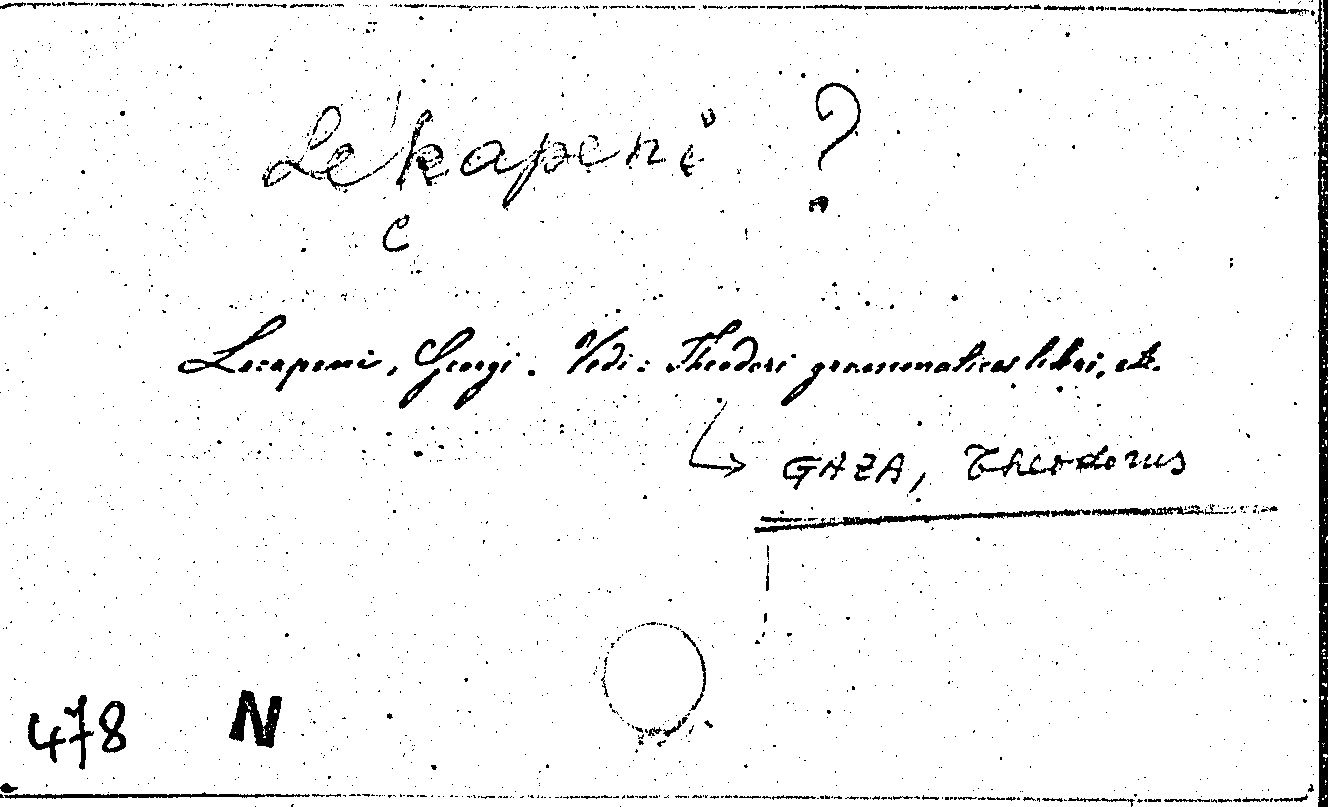 Lékapeni ?
c
Lecapeni, Georgi. Vedi: Theodori grammatices libri, etc.
GAZA, Theodorus
478 N